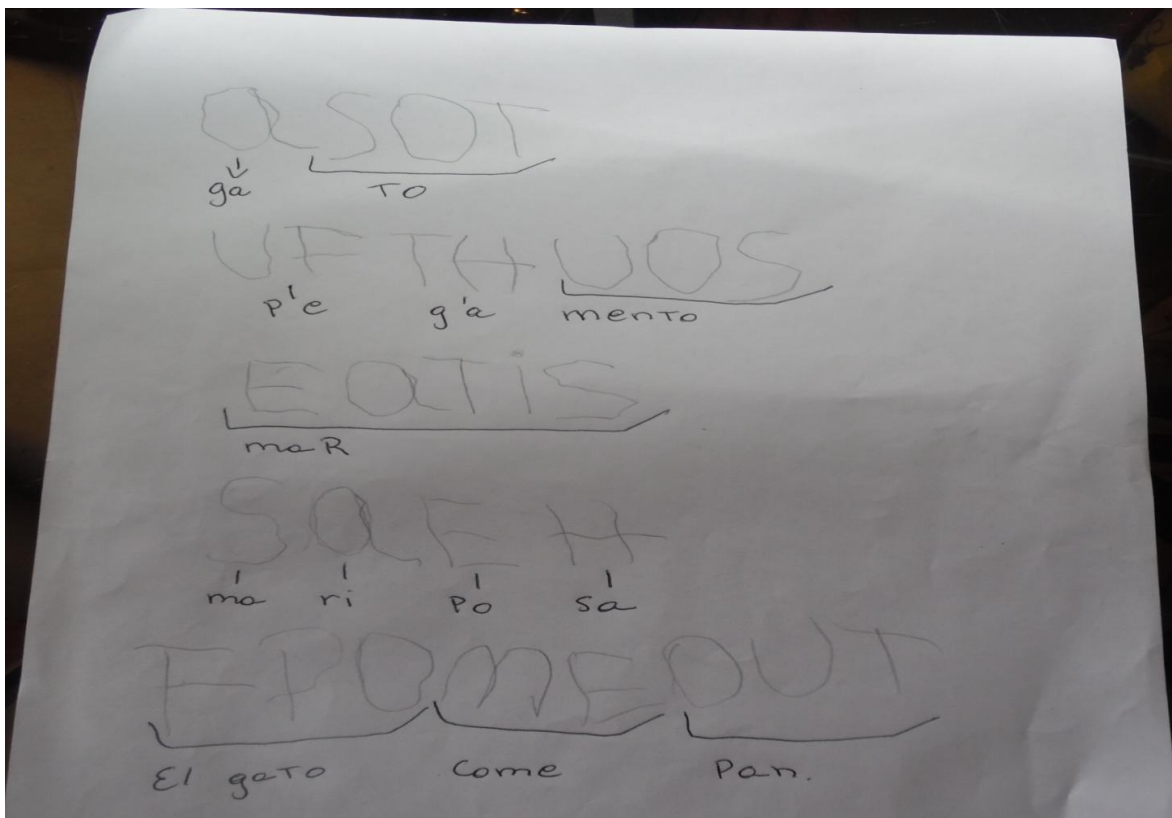 OLSOT
ga TO
UFTHUOS
pe ga menTO
EaTiS
maR
SaEH
ma ri Po sa
EPOMEOUT
El gaTo Come Pan.